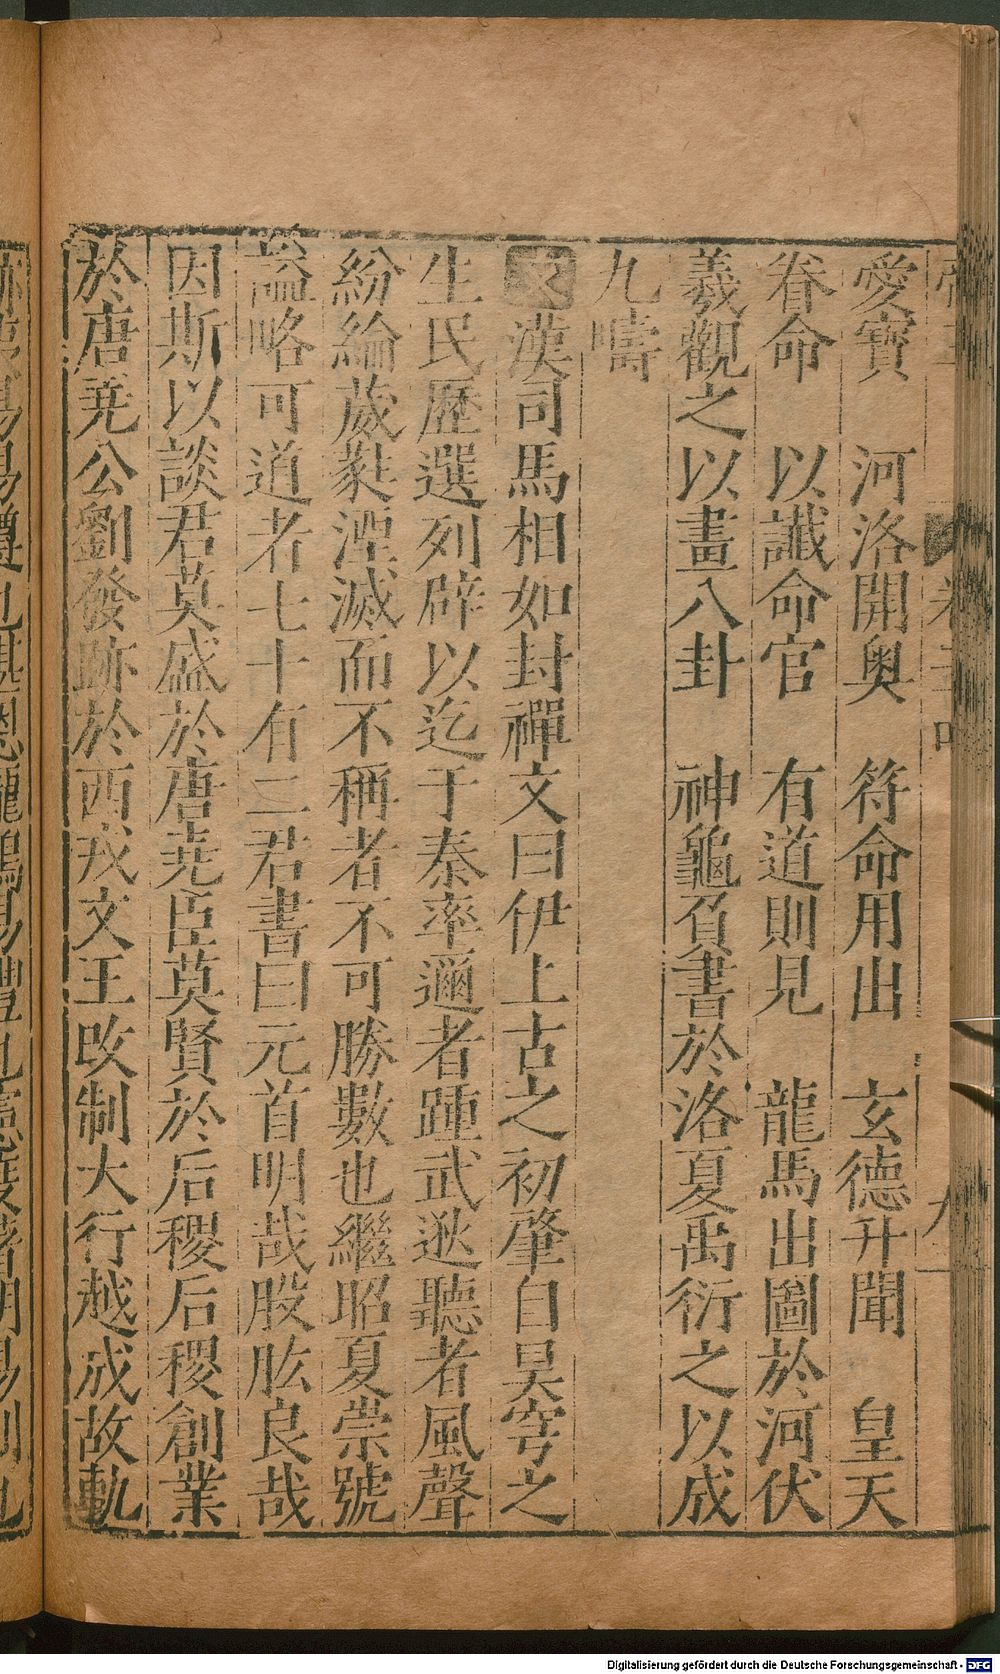 愛寶　河洛開奥　符命用出　玄德升聞　皇天
眷命　以讖命官　有道則見　龍馬出圖於河伏
羲觀之以畫八卦　神龜負書於洛夏禹衍之以成
九疇
文漢司馬相如封禪文曰伊上古之初肇自昊穹之
生民歷選列辟以迄于秦率邇者踵武逖聽者風聲
紛綸葳蕤湮滅而不稱者不可勝數也繼昭夏崇號
謚略可道者七十有二君書曰元首明哉股肱良哉
因斯以談君莫盛於唐堯臣莫賢於后稷后稷創業
於唐堯公劉發跡於西戎文王改制大行越成故軌
Digitalisierung gefördert durch die Deutsche Forschungsgemeinschaft - DFG